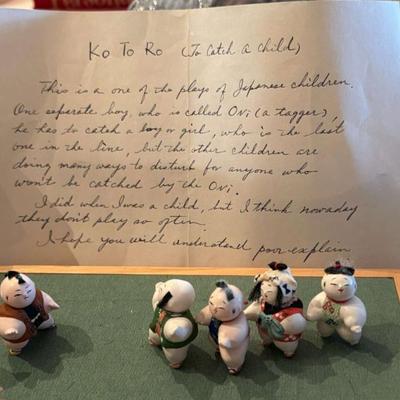 Ko To Ro (To Catch a Child)
This is a one of the plays of Japanese children.
One separate boy, who is called Oni (a tagger),
he has to catch a boy or girl, who is the last
one in the line, but the other children are
doing many ways to disturb for anyone who
won't be catched by the Oni.
I did when I was a child, but I think nowaday
they don't play so often.
I hope you will understand poor explain